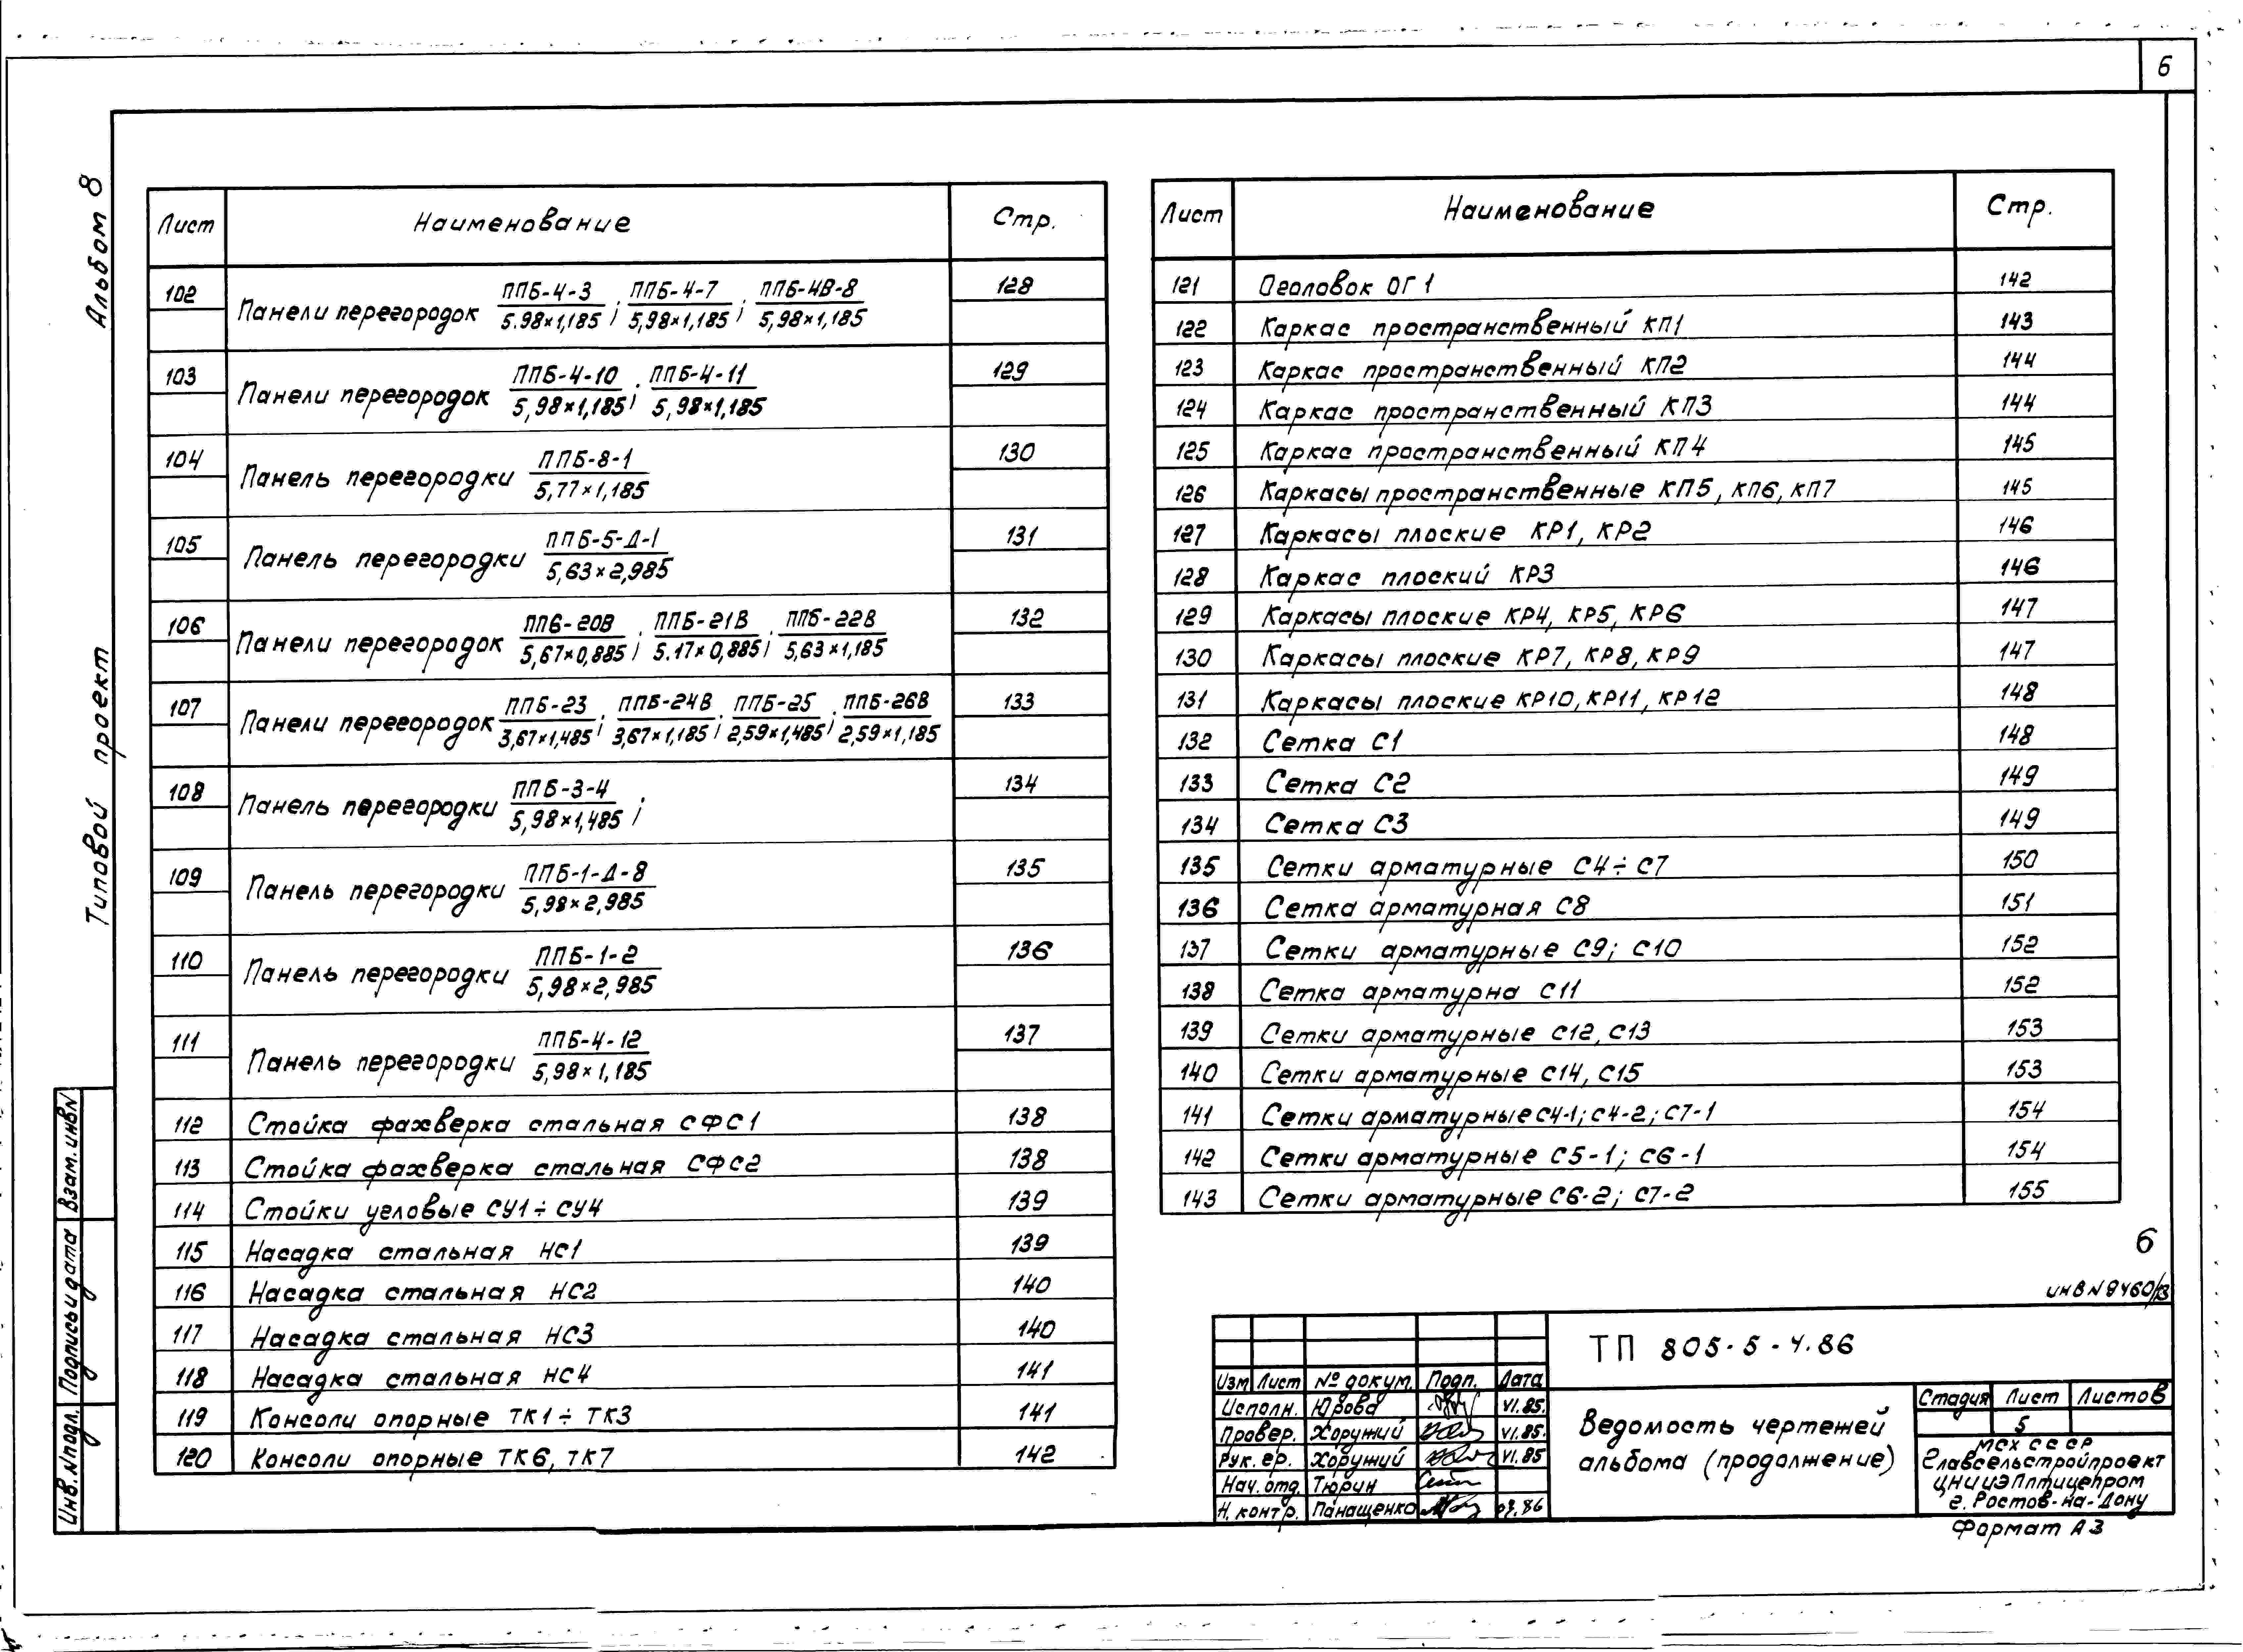 6
Альбом 8
Типовой проект
Лист Наименование Стр.
102 Панели перегородок ППБ-4-3 / 5.98×1,185 ; ППБ-4-7 / 5,98×1,185 ; ППБ-4В-8 / 5,98×1,185 128
103 Панели перегородок ППБ-4-10 / 5,98×1,185 ; ППБ-4-11 / 5,98×1,185 129
104 Панель перегородки ППБ-8-1 / 5,77×1,185 130
105 Панель перегородки ППБ-5-Д-1 / 5,63×2,985 131
106 Панели перегородок ППБ-20В / 5,67×0,885 ; ППБ-21В / 5.17×0,885 ; ППБ-22В / 5,63×1,185 132
107 Панели перегородок ППБ-23 / 3,67×1,485 ; ППБ-24В / 3,67×1,185 ; ППБ-25 / 2,59×1,485 ; ППБ-26В / 2,59×1,185 133
108 Панель перегородки ППБ-3-4 / 5,98×1,485 ; 134
109 Панель перегородки ППБ-1-Д-8 / 5,98×2,985 135
110 Панель перегородки ППБ-1-2 / 5,98×2,985 136
111 Панель перегородки ППБ-4-12 / 5,98×1,185 137
112 Стойка фахверка стальная СФС1 138
113 Стойка фахверка стальная СФС2 138
114 Стойки угловые СУ1÷СУ4 139
115 Насадка стальная НС1 139
116 Насадка стальная НС2 140
117 Насадка стальная НС3 140
118 Насадка стальная НС4 141
119 Консоли опорные ТК1÷ТК3 141
120 Консоли опорные ТК6, ТК7 142
Лист Наименование Стр.
121 Оголовок ОГ1 142
122 Каркас пространственный КП1 143
123 Каркас пространственный КП2 144
124 Каркас пространственный КП3 144
125 Каркас пространственный КП4 145
126 Каркасы пространственные КП5, КП6, КП7 145
127 Каркасы плоские КР1, КР2 146
128 Каркас плоский КР3 146
129 Каркасы плоские КР4, КР5, КР6 147
130 Каркасы плоские КР7, КР8, КР9 147
131 Каркасы плоские КР10, КР11, КР12 148
132 Сетка С1 148
133 Сетка С2 149
134 Сетка С3 149
135 Сетки арматурные С4÷С7 150
136 Сетка арматурная С8 151
137 Сетки арматурные С9; С10 152
138 Сетка арматурна С11 152
139 Сетки арматурные С12, С13 153
140 Сетки арматурные С14, С15 153
141 Сетки арматурные С4-1; С4-2; С7-1 154
142 Сетки арматурные С5-1; С6-1 154
143 Сетки арматурные С6-2; С7-2 155
6
инв N 9460/13
ТП 805-5-4.86
Изм Лист № докум. Подп. Дата
Исполн. Юрова VI.85.
Провер. Хоружий VI.85.
Рук. гр. Хоружий VI.85
Нач. отд. Тюрин
Н. контр. Панащенко 86
Ведомость чертежей
альбома (продолжение)
Стадия Лист Листов
5
МСХ СССР
Главсельстройпроект
ЦНИИЭПптицепром
г. Ростов-на-Дону
Формат А3
Инв. N подл. Подпись и дата Взам. инв N